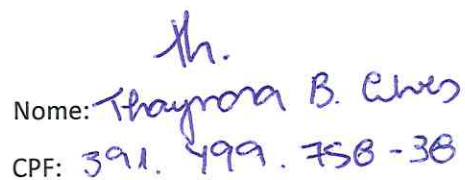 Th.
Nome: Thaynara B. Alves
CPF: 391.499.758-38